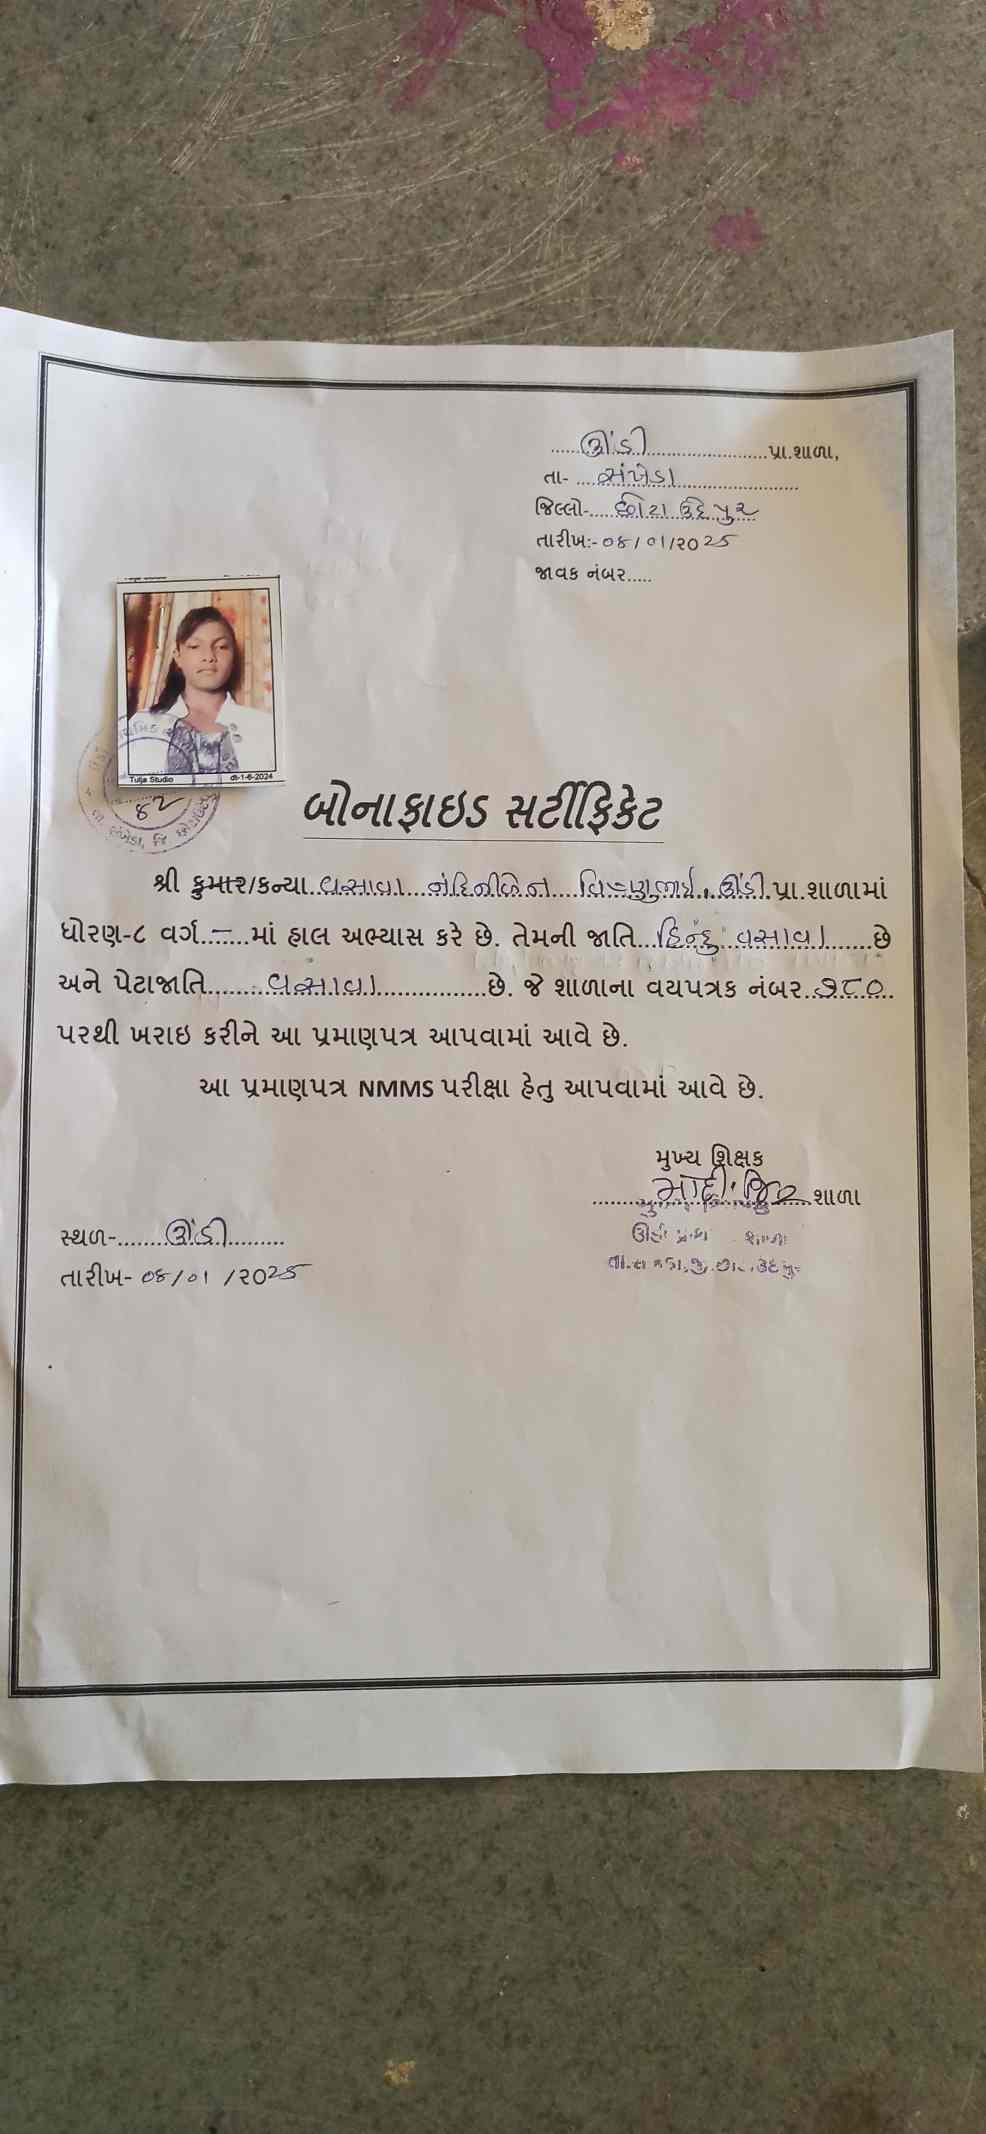 ઊંડી પ્રા.શાળા,
તા- સંખેડા
જિલ્લો- છોટા ઉદેપુર
તારીખ:- ૦૪/૦૧/૨૦૨૫
જાવક નંબર.....
Tulja Studio dt-1-6-2024
૪૨
તા. સંખેડા, જિ છોટાઉદેપુર
બોનાફાઇડ સર્ટીફિકેટ
શ્રી કુમાર/કન્યા વસાવા નંદિનીબેન વિષ્ણુભાઇ, ઊંડી પ્રા.શાળામાં
ધોરણ-૮ વર્ગ – માં હાલ અભ્યાસ કરે છે. તેમની જાતિ હિન્દુ વસાવા છે
અને પેટાજાતિ વસાવા છે. જે શાળાના વયપત્રક નંબર ૭૮૦
પરથી ખરાઇ કરીને આ પ્રમાણપત્ર આપવામાં આવે છે.
આ પ્રમાણપત્ર NMMS પરીક્ષા હેતુ આપવામાં આવે છે.
મુખ્ય શિક્ષક
શાળા
સ્થળ- ઊંડી
તારીખ- ૦૪/૦૧/૨૦૨૫